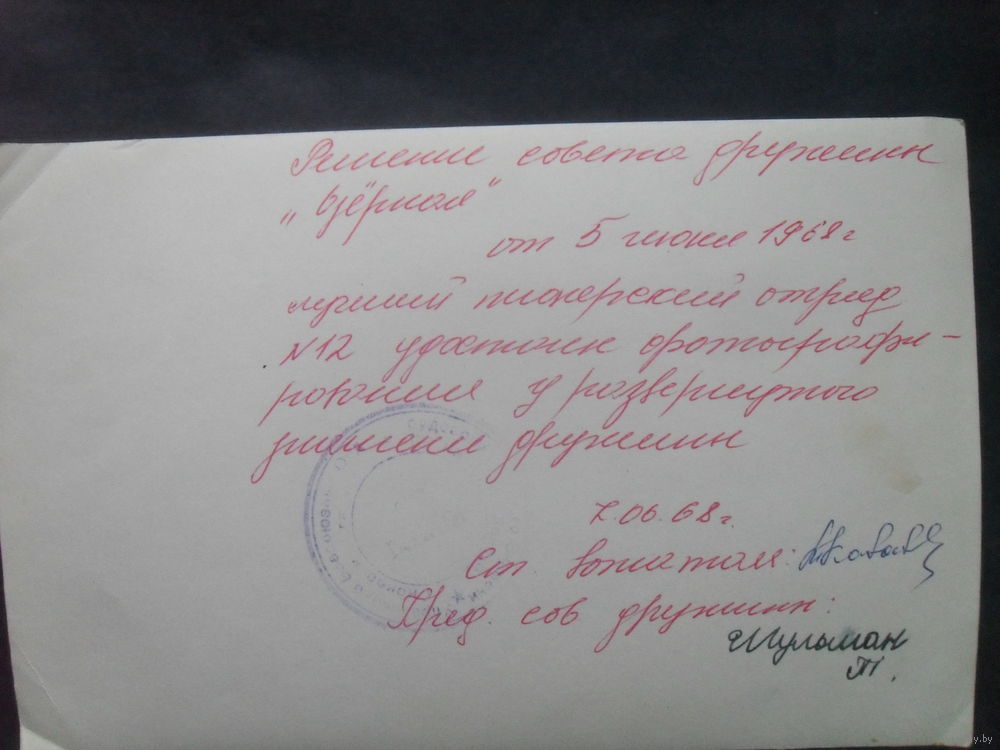 Решение совета дружины
„Озёрная"
от 5 июня 1968 г
лучший пионерский отряд
№12 удостоен фотографи-
рования у развернутого
знамени дружины
7.06.68 г.
Ст. вожатая:
Пред. сов дружины:
Шульман
Т.